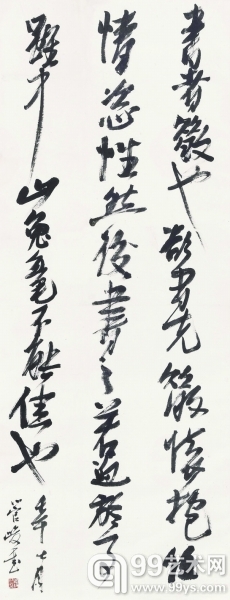 書者散也欲書先散懷抱任
情恣性然後書之若迫於事
雖中山兔毫不能佳也
七月
管峻書
99艺术网
www.99ys.com